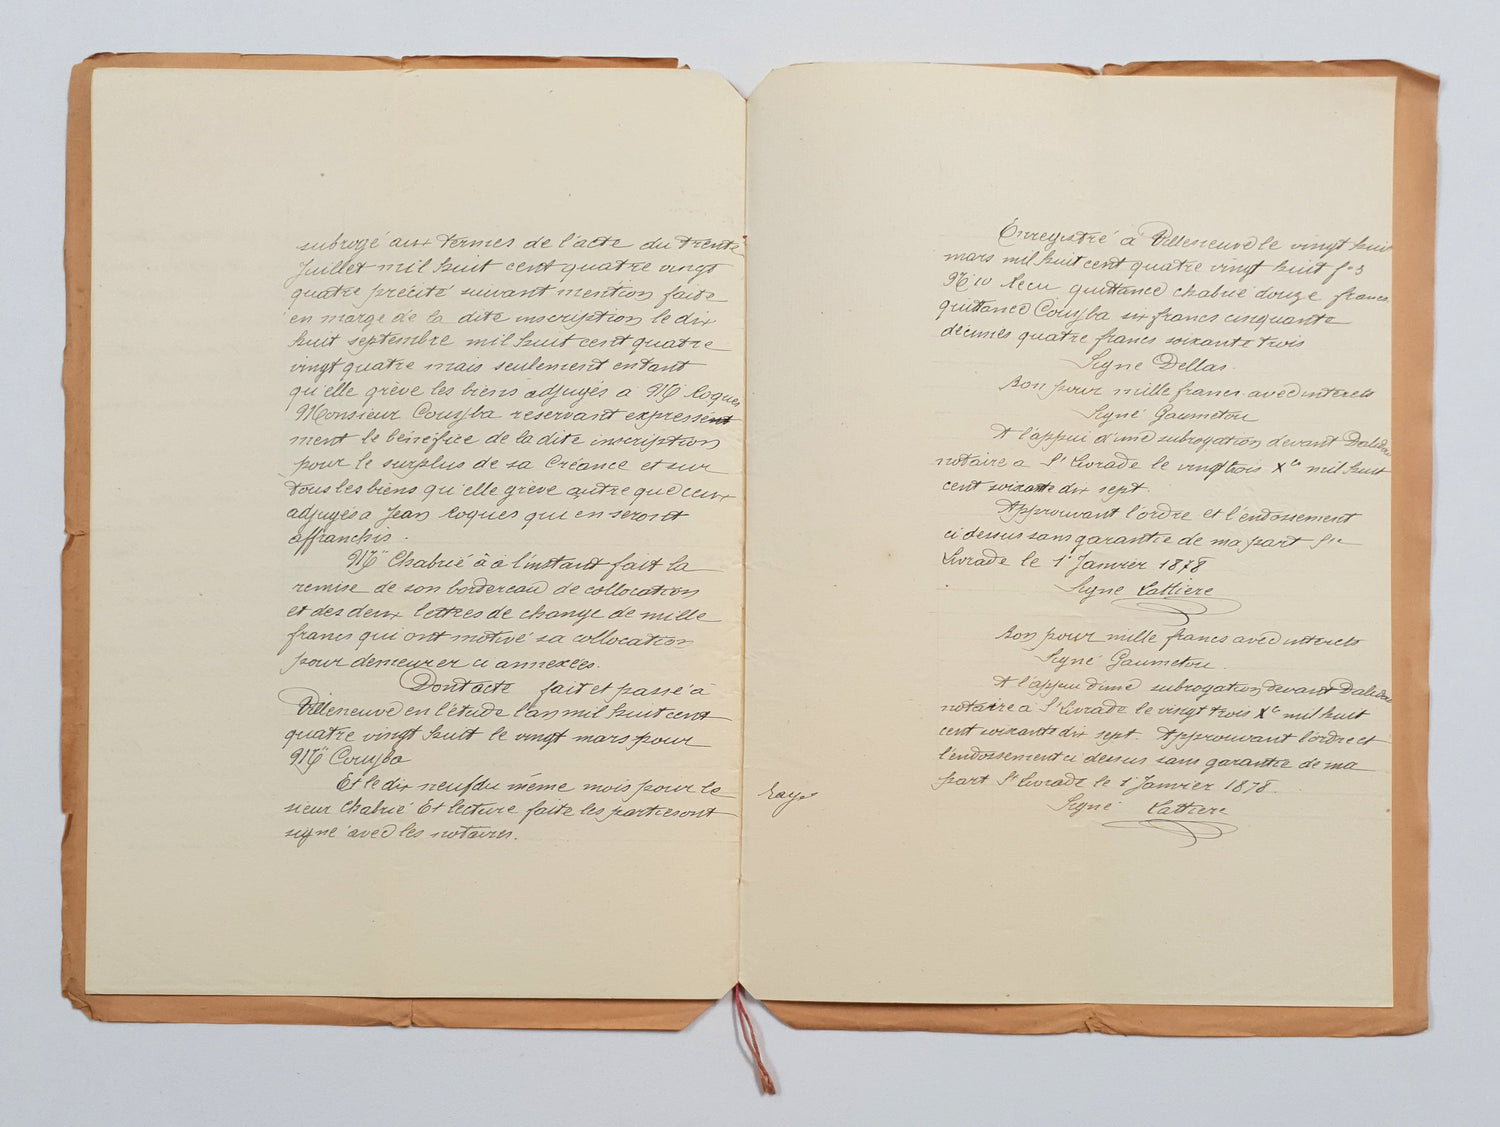 subrogé aux termes de l'acte du trente
Juillet mil huit cent quatre vingt
quatre précité suivant mention faite
en marge de la dite inscription le dix
huit septembre mil huit cent quatre
vingt quatre mais seulement entant
qu'elle grève les biens adjugés à Mr Roques
Monsieur Couyba réservant expressé
ment le bénéfice de la dite inscription
pour le surplus de sa Créance et sur
tous les biens qu'elle grève autre que ceux
adjugés a Jean Roques qui en seront
affranchis.
Mr Chabrié à à l'instant fait la
remise de son bordereau de collocation
et des deux lettres de change de mille
francs qui ont motivé sa collocation
pour demeurer ci annexées.
Dont acte fait et passé à
Villeneuve en l'étude l'an mil huit cent
quatre vingt huit le vingt mars pour
Mr Couyba
Et le dix neuf du même mois pour le
sieur Chabrié Et lecture faite les parties ont
signé avec les notaires.
Enregistré à Villeneuve le vingt huit
mars mil huit cent quatre vingt huit f° 3
N° 10 Recu quittance Chabrié douze francs
quittance Couyba six francs cinquante
décimes quatre francs soixante trois
Signé Dellas.
Bon pour mille francs avec intérets
Signé Gaumetou
A l'appui d'une subrogation devant
notaire a Ste Livrade le vingt trois Xbre mil huit
cent soixante dix sept.
Approuvant l'ordre et l'endossement
ci dessus sans garantie de ma part Ste
Livrade le 1r Janvier 1878
Signé Lattiere
Bon pour mille francs avec intérets
Signé Gaumetou.
A l'appui d'une subrogation devant
notaire à Ste Livrade le vingt trois Xbre mil huit
cent soixante dix sept. Approuvant l'ordre et
l'endossement ci dessus sans garantie de ma
part Ste Livrade le 1r Janvier 1878.
Signé Lattiere